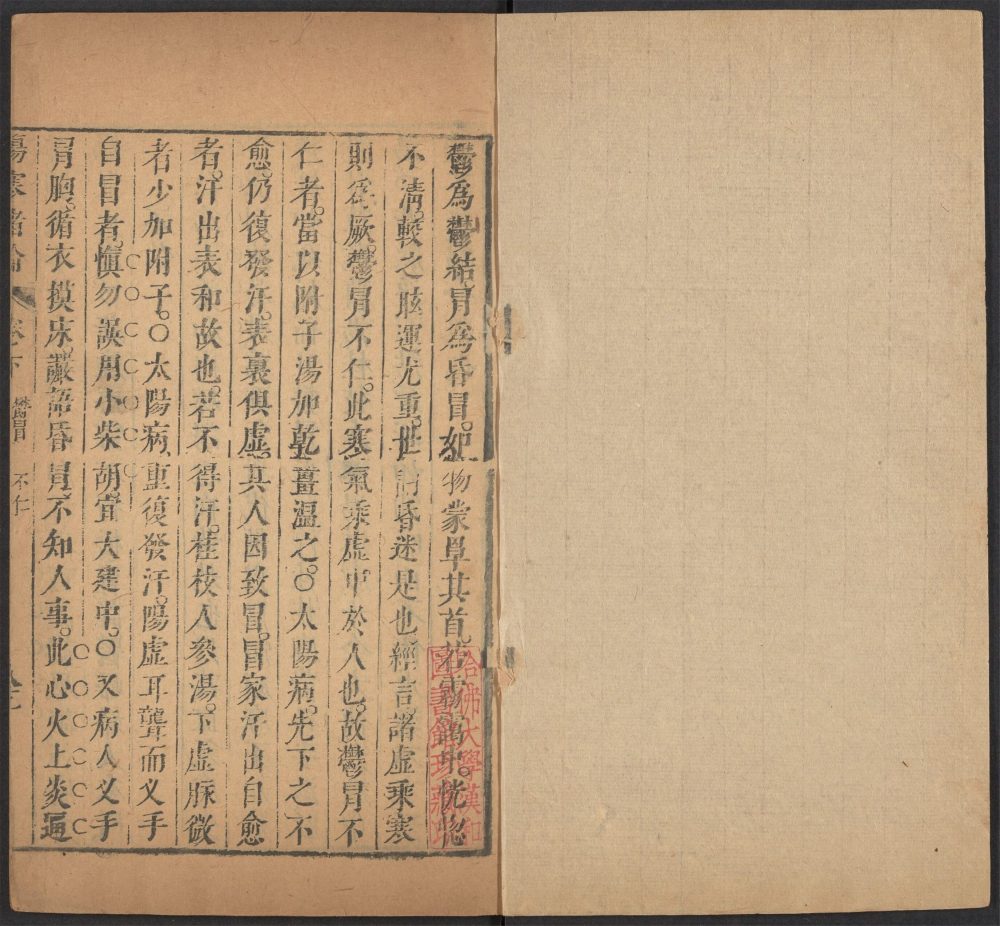 鬱爲鬱結冐爲昏冒。如物蒙罩其首。若霧露中。恍惚
不淸。較之眩運尤重。世謂昏迷是也經言。諸虛乘寒
則爲厥。鬱冐不仁。此寒氣乘虛中於人也。故鬱冐不
仁者。當以附子湯加乾薑溫之。○太陽病。先下之不
愈。仍復發汗。表裏俱虛。其人因致冒。冒家汗出自愈
者。汗出表和故也。若不得汗。桂枝人參湯。下虛脈微
者少加附子。○太陽病。重復發汗。陽虛耳聾而叉手
自冒者。愼勿誤用小柴胡。宜大建中。○又病人叉手
冐胸。循衣摸床。讝語昏冐。不知人事。此心火上炎逼
傷寒緒論 卷下 鬱冒 不仁
哈佛大學漢和
圖書館珍藏印